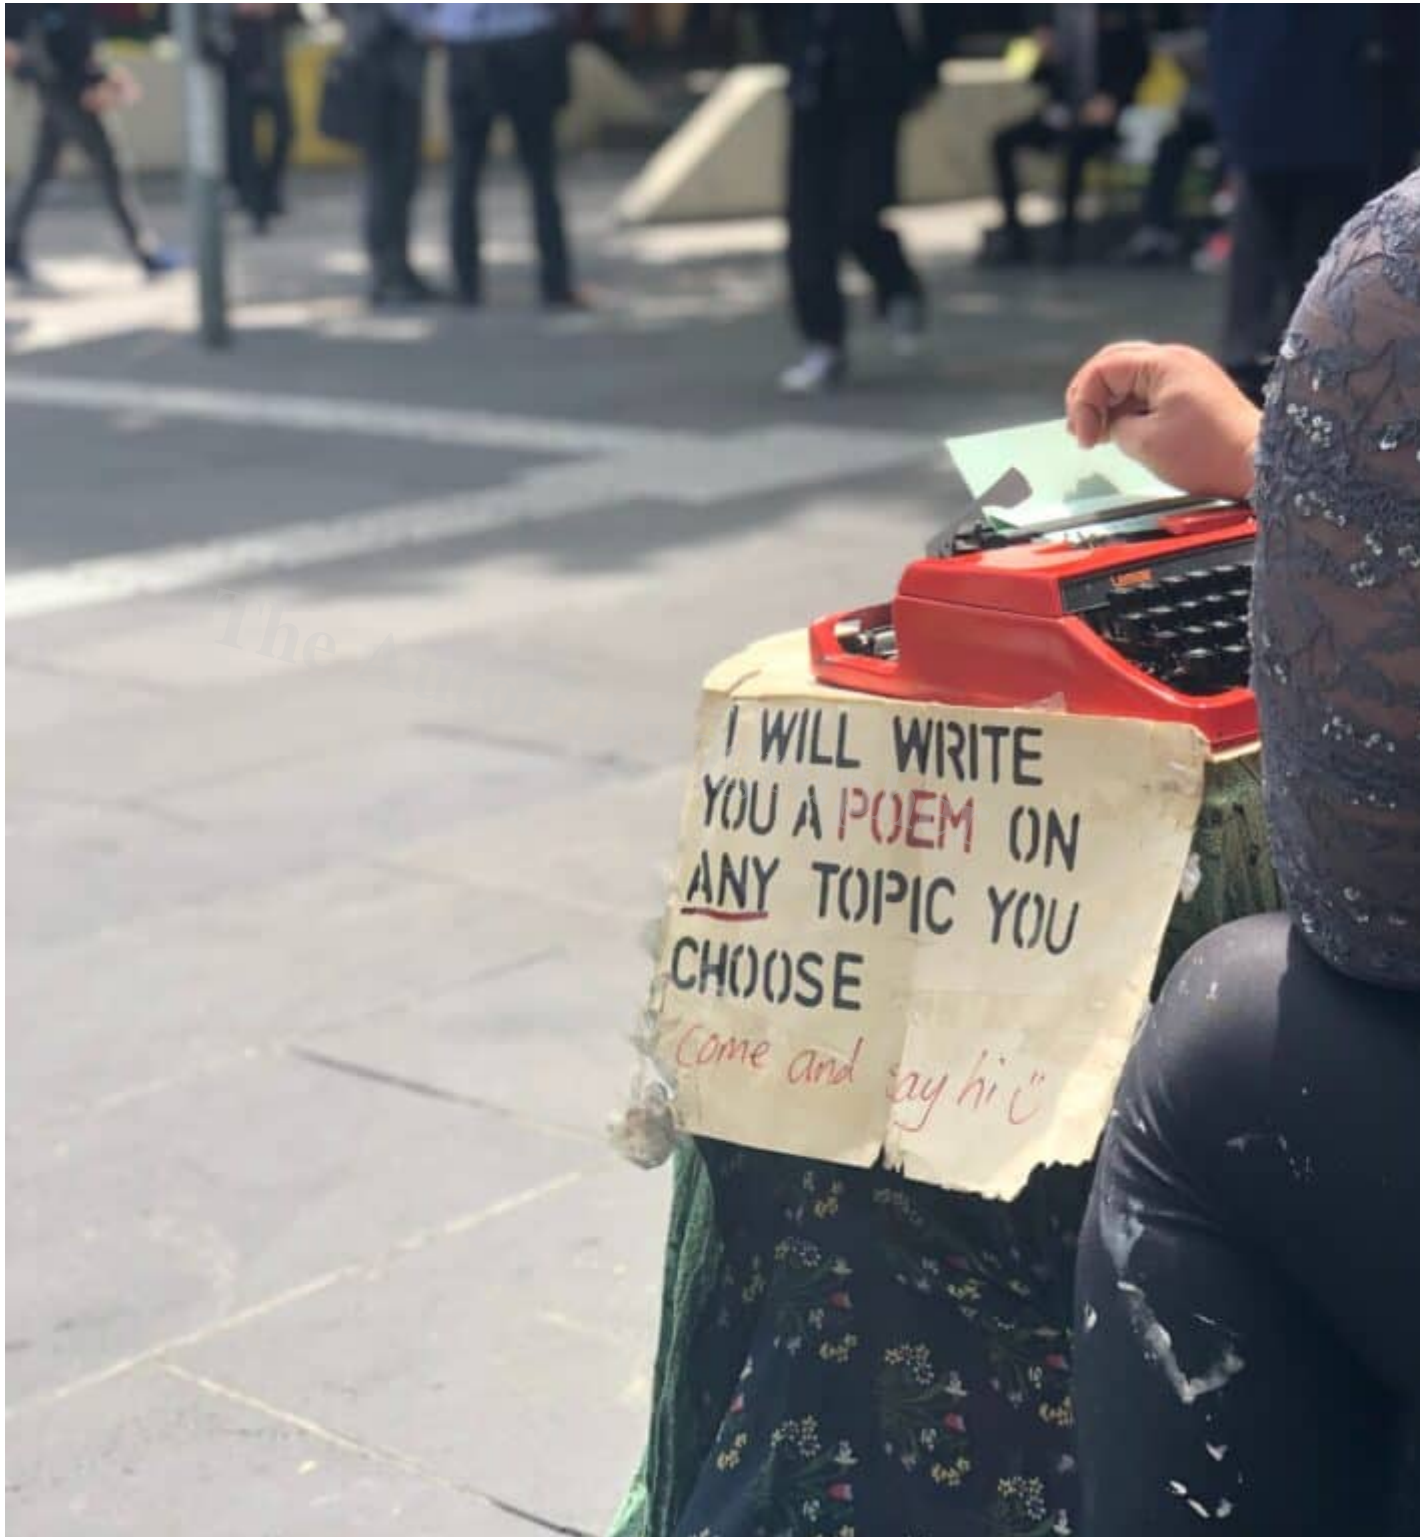 I WILL WRITE
YOU A POEM ON
ANY TOPIC YOU
CHOOSE
come and say hi